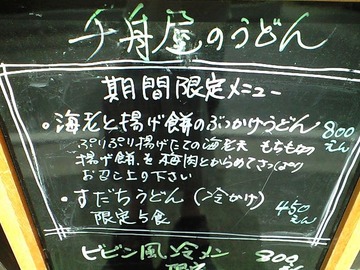 千舟屋のうどん
期間限定メニュー
・海老と揚げ餅のぶっかけうどん 800えん
ぷりぷり揚げたての海老天 もちもちの
揚げ餅を梅肉とからめてさっぱり
お召し上り下さい
・すだちうどん(冷かけ) 450えん
限定5食
ビビン風冷メン 800